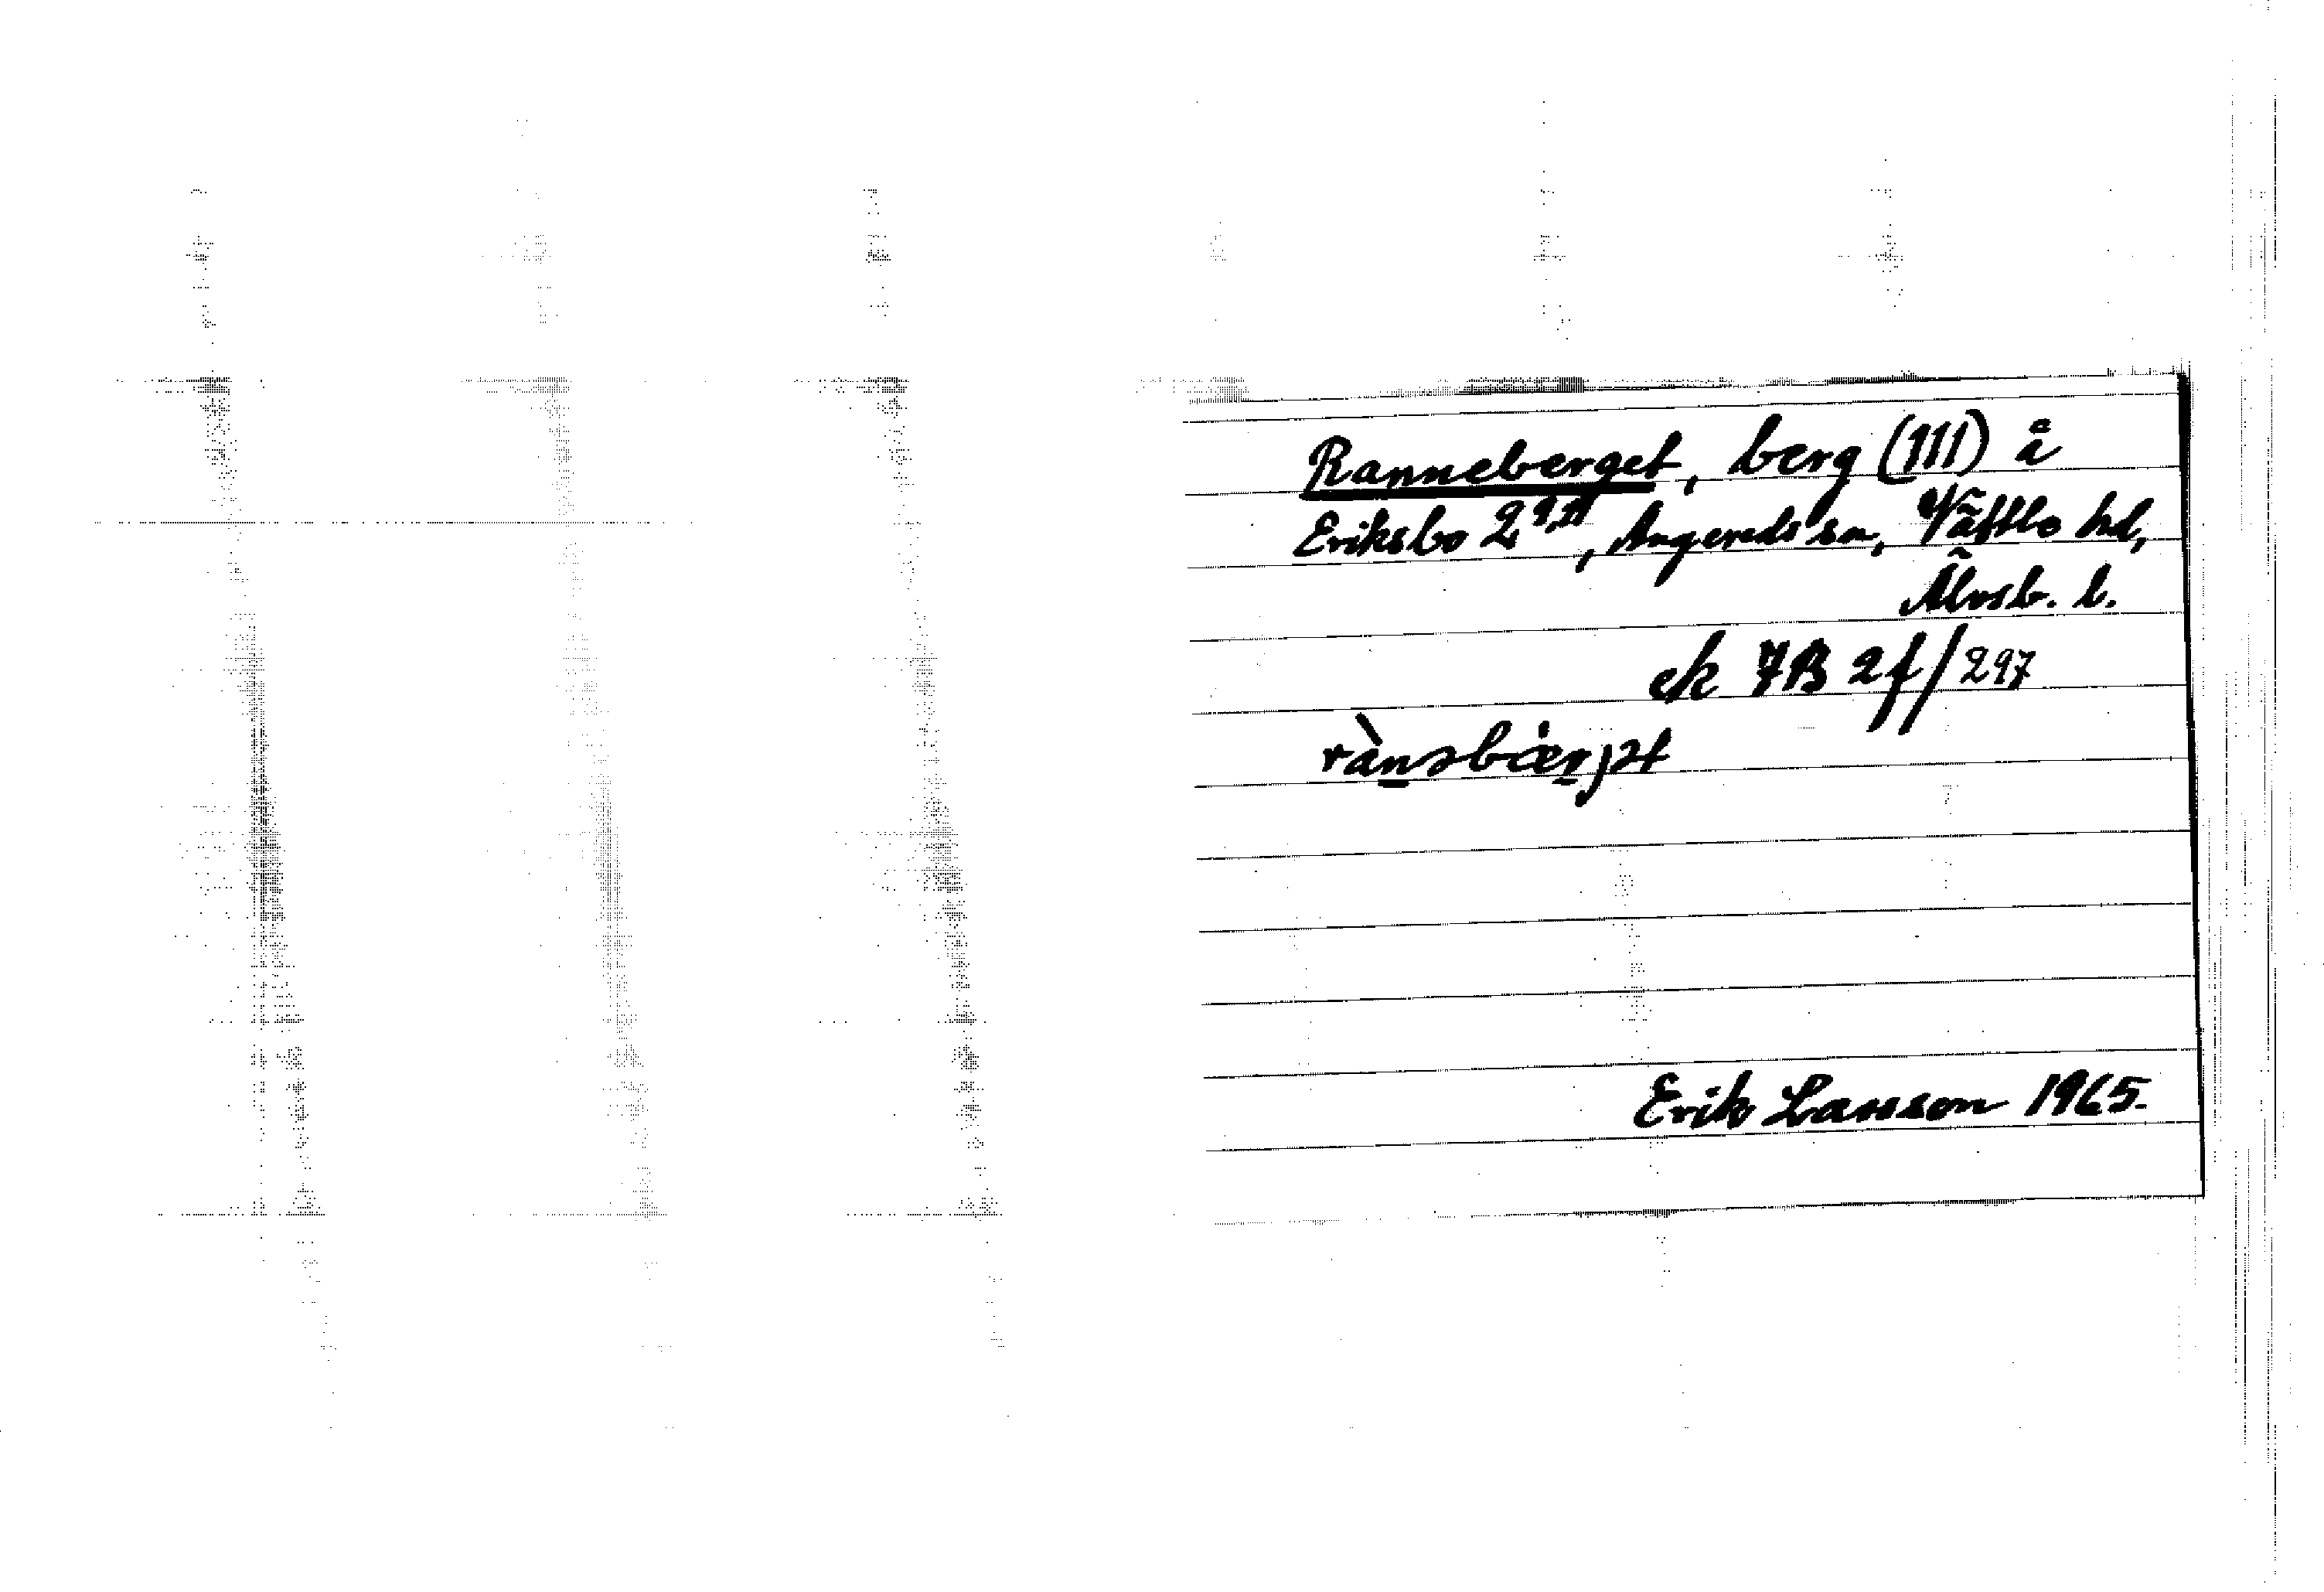 Ranneberget, berg (111) å
Eriksbo 2⁹,²¹, Angereds sn, Vättle hd,
Älvsb. l.
ek 7B 2f/297
rànəbær̲jət
Erik Larsson 1965.